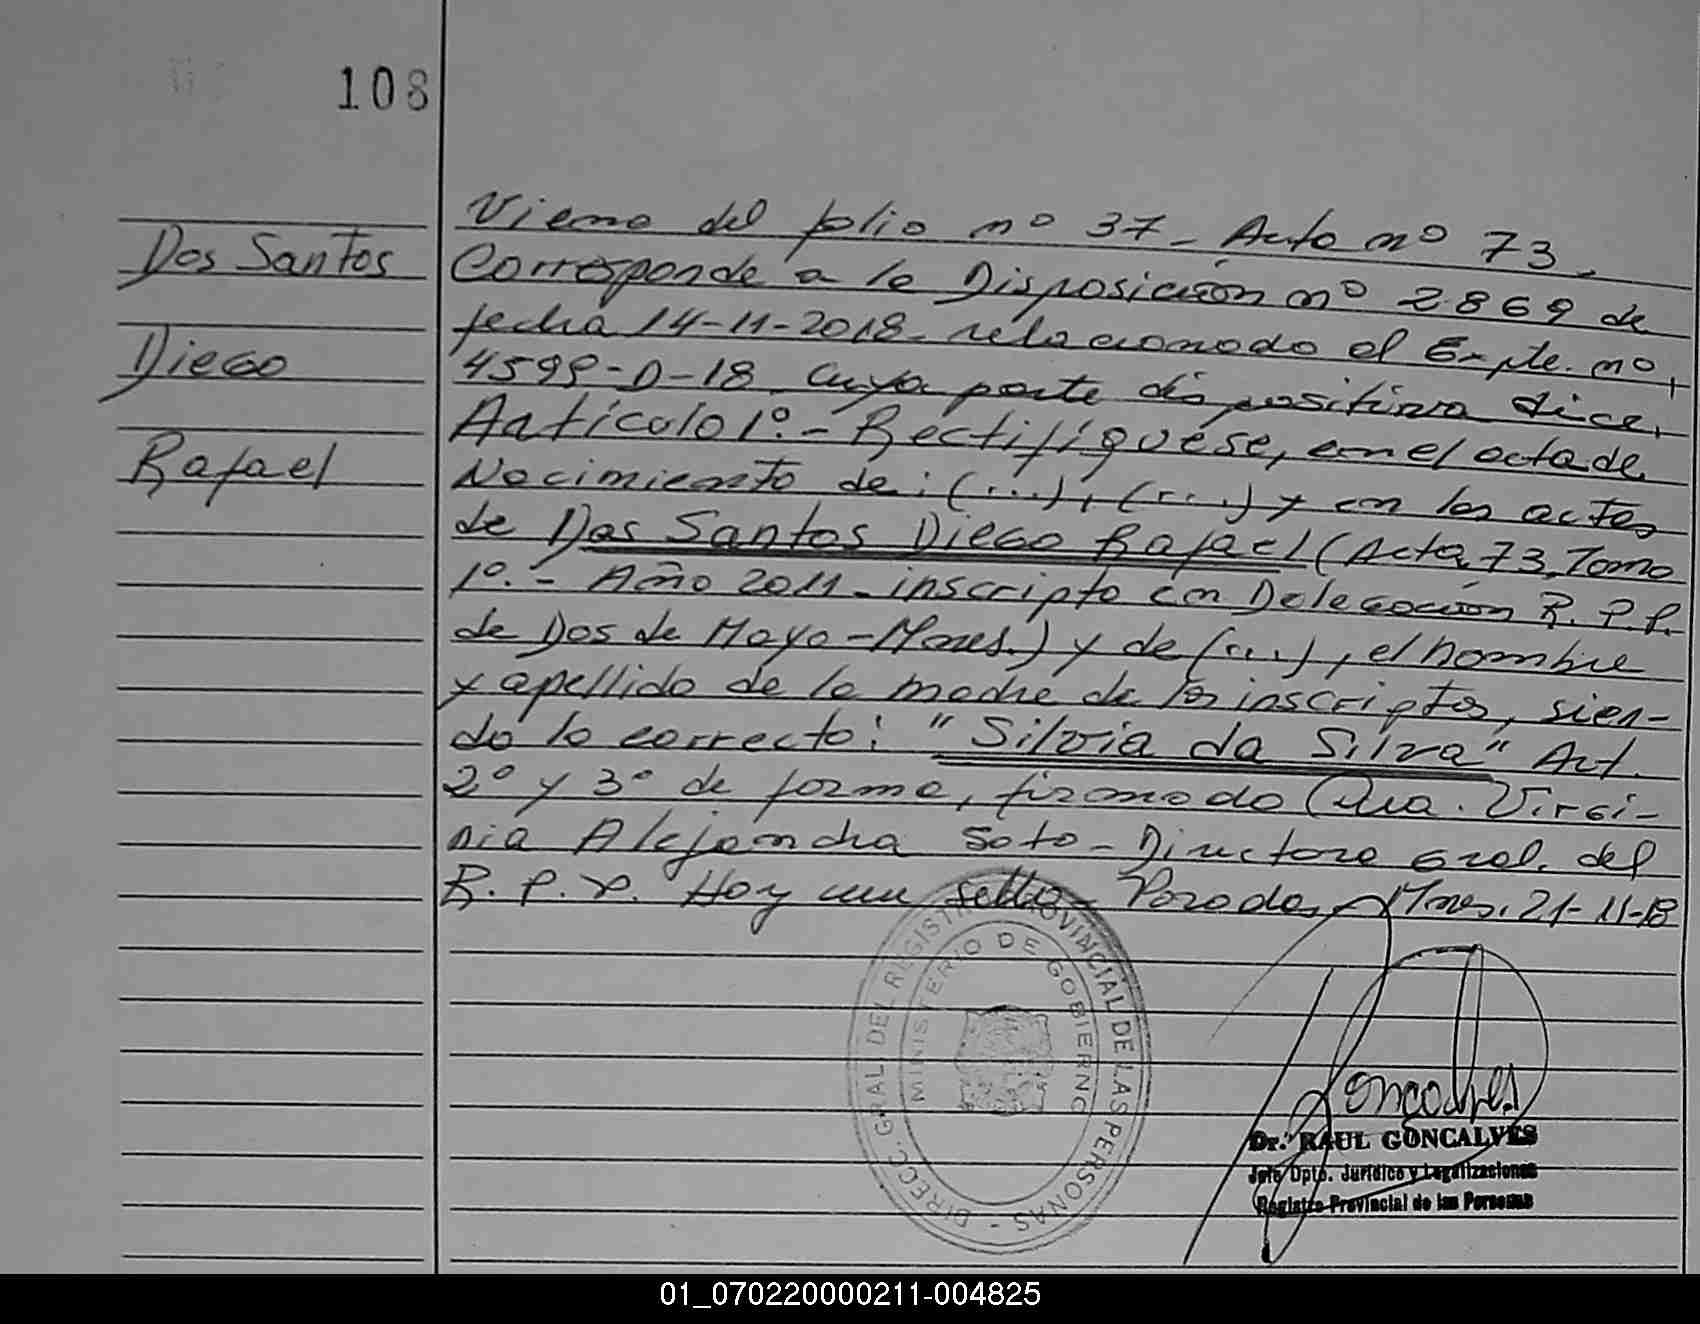 108
Viene del folio nº 37 - Acta nº 73.
Dos Santos
Corresponde a la Disposición nº 2869 de
fecha 14-11-2018 - relacionado al Expte. nº
Diego
4599-D-18 cuya parte dispositiva dice,
Artículo 1º.- Rectifíquese, en el acta de
Rafael
Nacimiento de: (...), (...) y en las actas
de Dos Santos Diego Rafael (Acta 73, Tomo
1º.- Año 2011 - inscripto en Delegación R.P.P.
de Dos de Mayo - Mnes.) y de (...), el nombre
y apellido de la madre de los inscriptos, sien-
do lo correcto: "Silvia da Silva" Art.
2º y 3º de forma, firmado Dra. Virgi-
nia Alejandra Soto - Directora Gral. del
R.P.P. Hay un sello - Posadas, Mnes. 21-11-18
DIRECC. GRAL. DEL REGISTRO PROVINCIAL DE LAS PERSONAS -
MINISTERIO DE GOBIERNO
Goncalves
Dr. RAUL GONCALVES
Jefe Dpto. Jurídico y Legalizaciones
Registro Provincial de las Personas
01_070220000211-004825